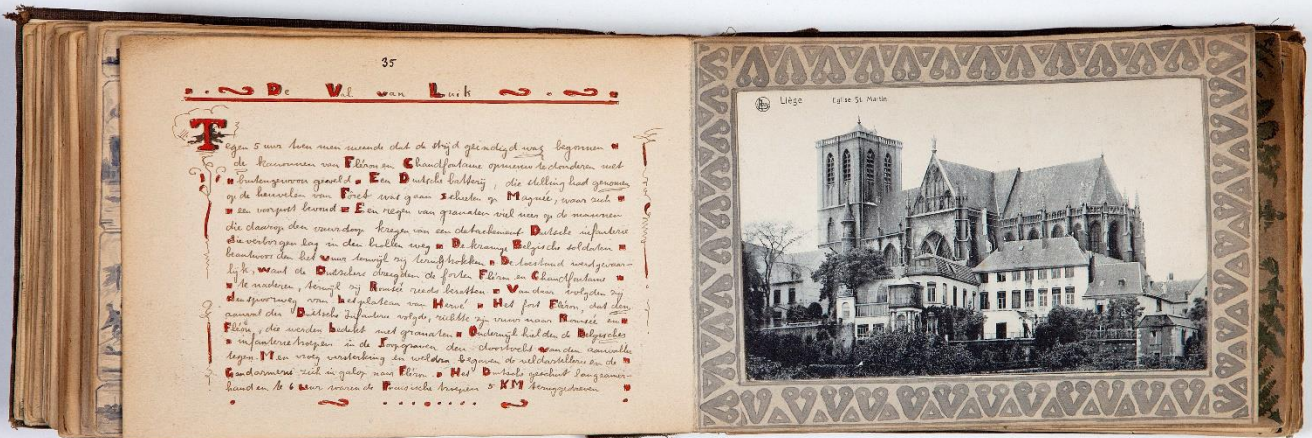 35
De Val van Luik
Tegen 5 uur toen men meende dat de strijd geeindigd was begonnen
de kanonnen van Fléron en Chaudfontaine opnieuw te donderen met
buitengewoon geweld. Een Duitsche batterij, die stelling had genomen
op de heuvelen van Forêt was gaan schieten op Magnée, waar zich
een voorpost bevond Een regen van granaten viel neer op de mannen
die daarop den vuurdoop kregen van een detachement Duitsche infanterie
die verborgen lag in den hollen weg De kranige Belgische soldaten
beantwoorden het vuur terwijl zij terugtrokken De toestand werd gevaar-
lijk, want de Duitschers dreigden de forten Fléron en Chaudfontaine
te naderen, terwijl zij Romsée reeds bezetten Vandaar volgden zij
den spoorweg van het plateau van Hervé Het fort Fléron, dat den
aanval der Duitsche Infanterie volgde, richtte zijn vuur naar Romsée en
Fléron, die werden bedekt met granaten Onderwijl hielden de Belgische
infanterietroepen in de loopgraven den doortocht van den aanvaller
tegen. Men vroeg versterking en weldra begaven de veldartillerie en de
Gendarmerie zich in galop naar Fléron Het Duitsch geschut langzamer-
hand en te 6 uur waren de Pruisische troepen 5 KM teruggedreven
Liège Eglise St. Martin